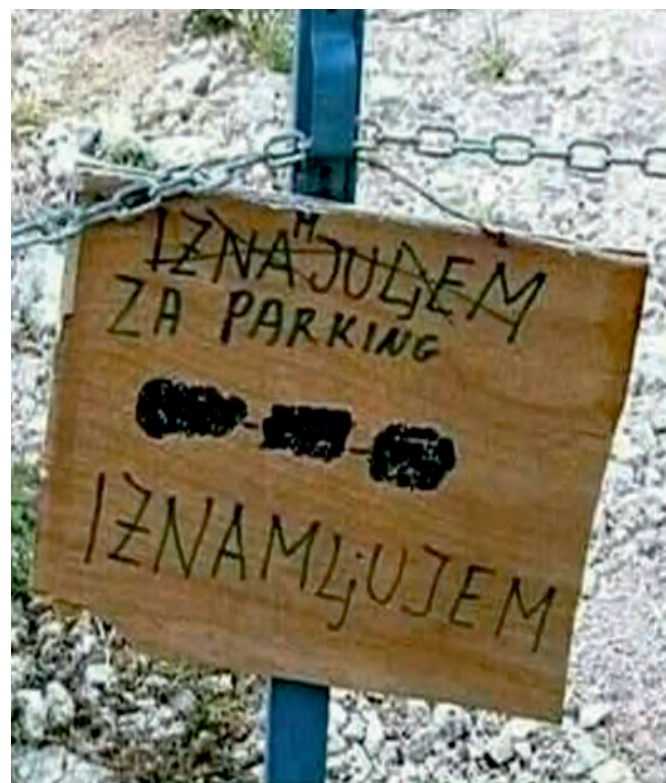 IZNAJULjEM
ZA PARKING
IZNAMLjUJEM